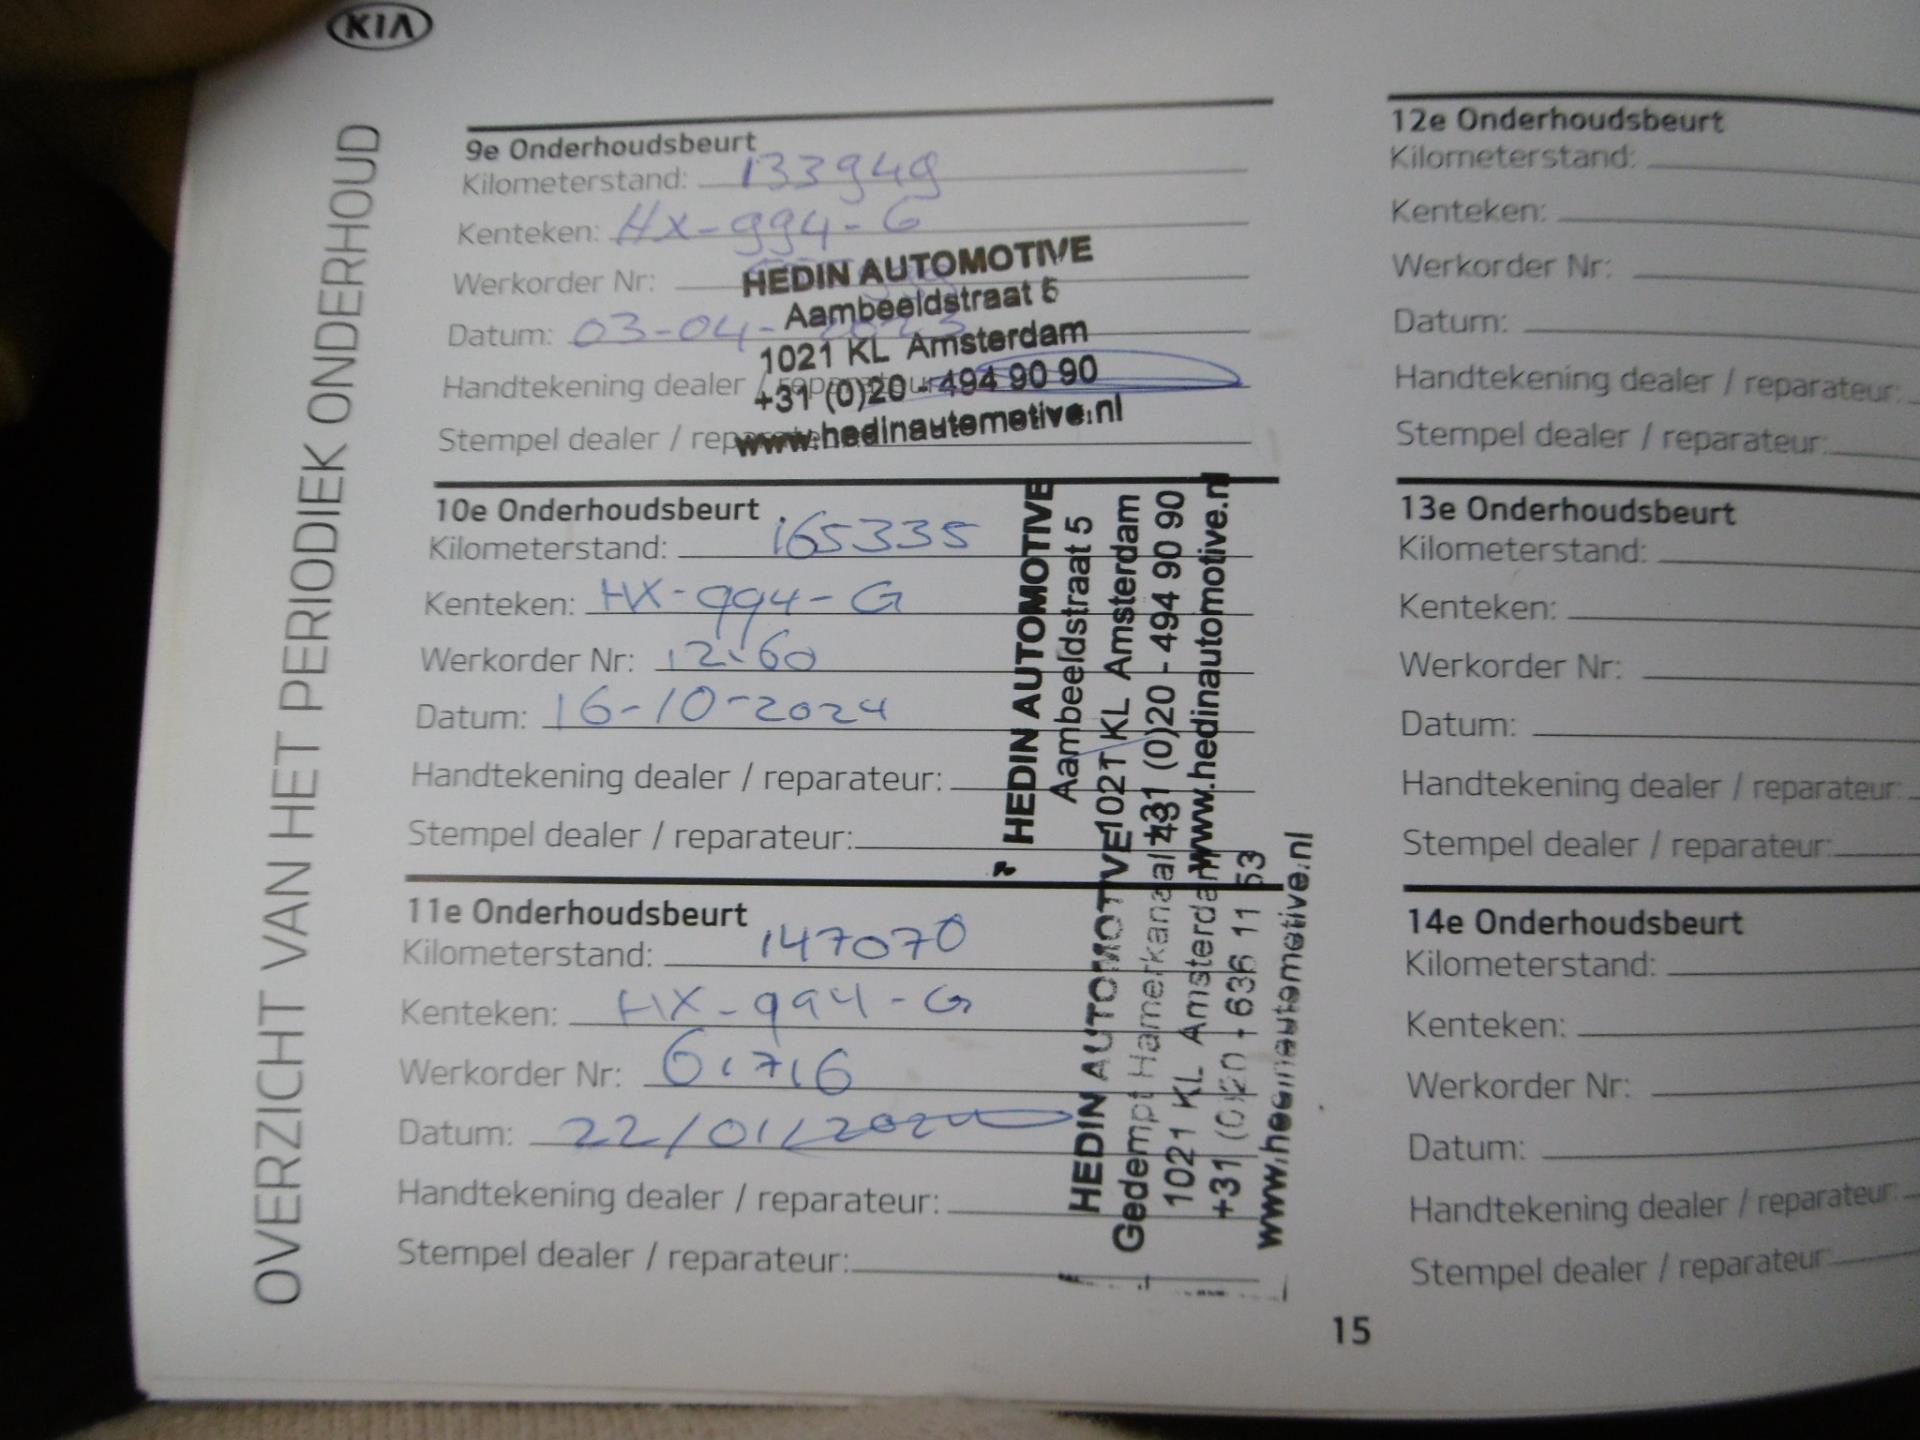 KIA
OVERZICHT VAN HET PERIODIEK ONDERHOUD
9e Onderhoudsbeurt
Kilometerstand: 133949
Kenteken: HX-994-G
Werkorder Nr:
Datum: 03-04-2023
Handtekening dealer / reparateur:
Stempel dealer / reparateur:
HEDIN AUTOMOTIVE
Aambeeldstraat 5
1021 KL Amsterdam
+31 (0)20 - 494 90 90
www.hedinautomotive.nl
10e Onderhoudsbeurt
Kilometerstand: 165335
Kenteken: HX-994-G
Werkorder Nr: 12160
Datum: 16-10-2024
Handtekening dealer / reparateur:
Stempel dealer / reparateur:
HEDIN AUTOMOTIVE
Aambeeldstraat 5
1021 KL Amsterdam
+31 (0)20 - 494 90 90
www.hedinautomotive.nl
11e Onderhoudsbeurt
Kilometerstand: 147070
Kenteken: HX-994-G
Werkorder Nr: 61716
Datum: 22/01/2024
Handtekening dealer / reparateur:
Stempel dealer / reparateur:
HEDIN AUTOMOTIVE
Gedempt Hamerkanaal
1021 KL Amsterdam
+31 (0)20 - 636 11 53
www.hedinautomotive.nl
15
12e Onderhoudsbeurt
Kilometerstand:
Kenteken:
Werkorder Nr:
Datum:
Handtekening dealer / reparateur:
Stempel dealer / reparateur:
13e Onderhoudsbeurt
Kilometerstand:
Kenteken:
Werkorder Nr:
Datum:
Handtekening dealer / reparateur:
Stempel dealer / reparateur:
14e Onderhoudsbeurt
Kilometerstand:
Kenteken:
Werkorder Nr:
Datum:
Handtekening dealer / reparateur:
Stempel dealer / reparateur: